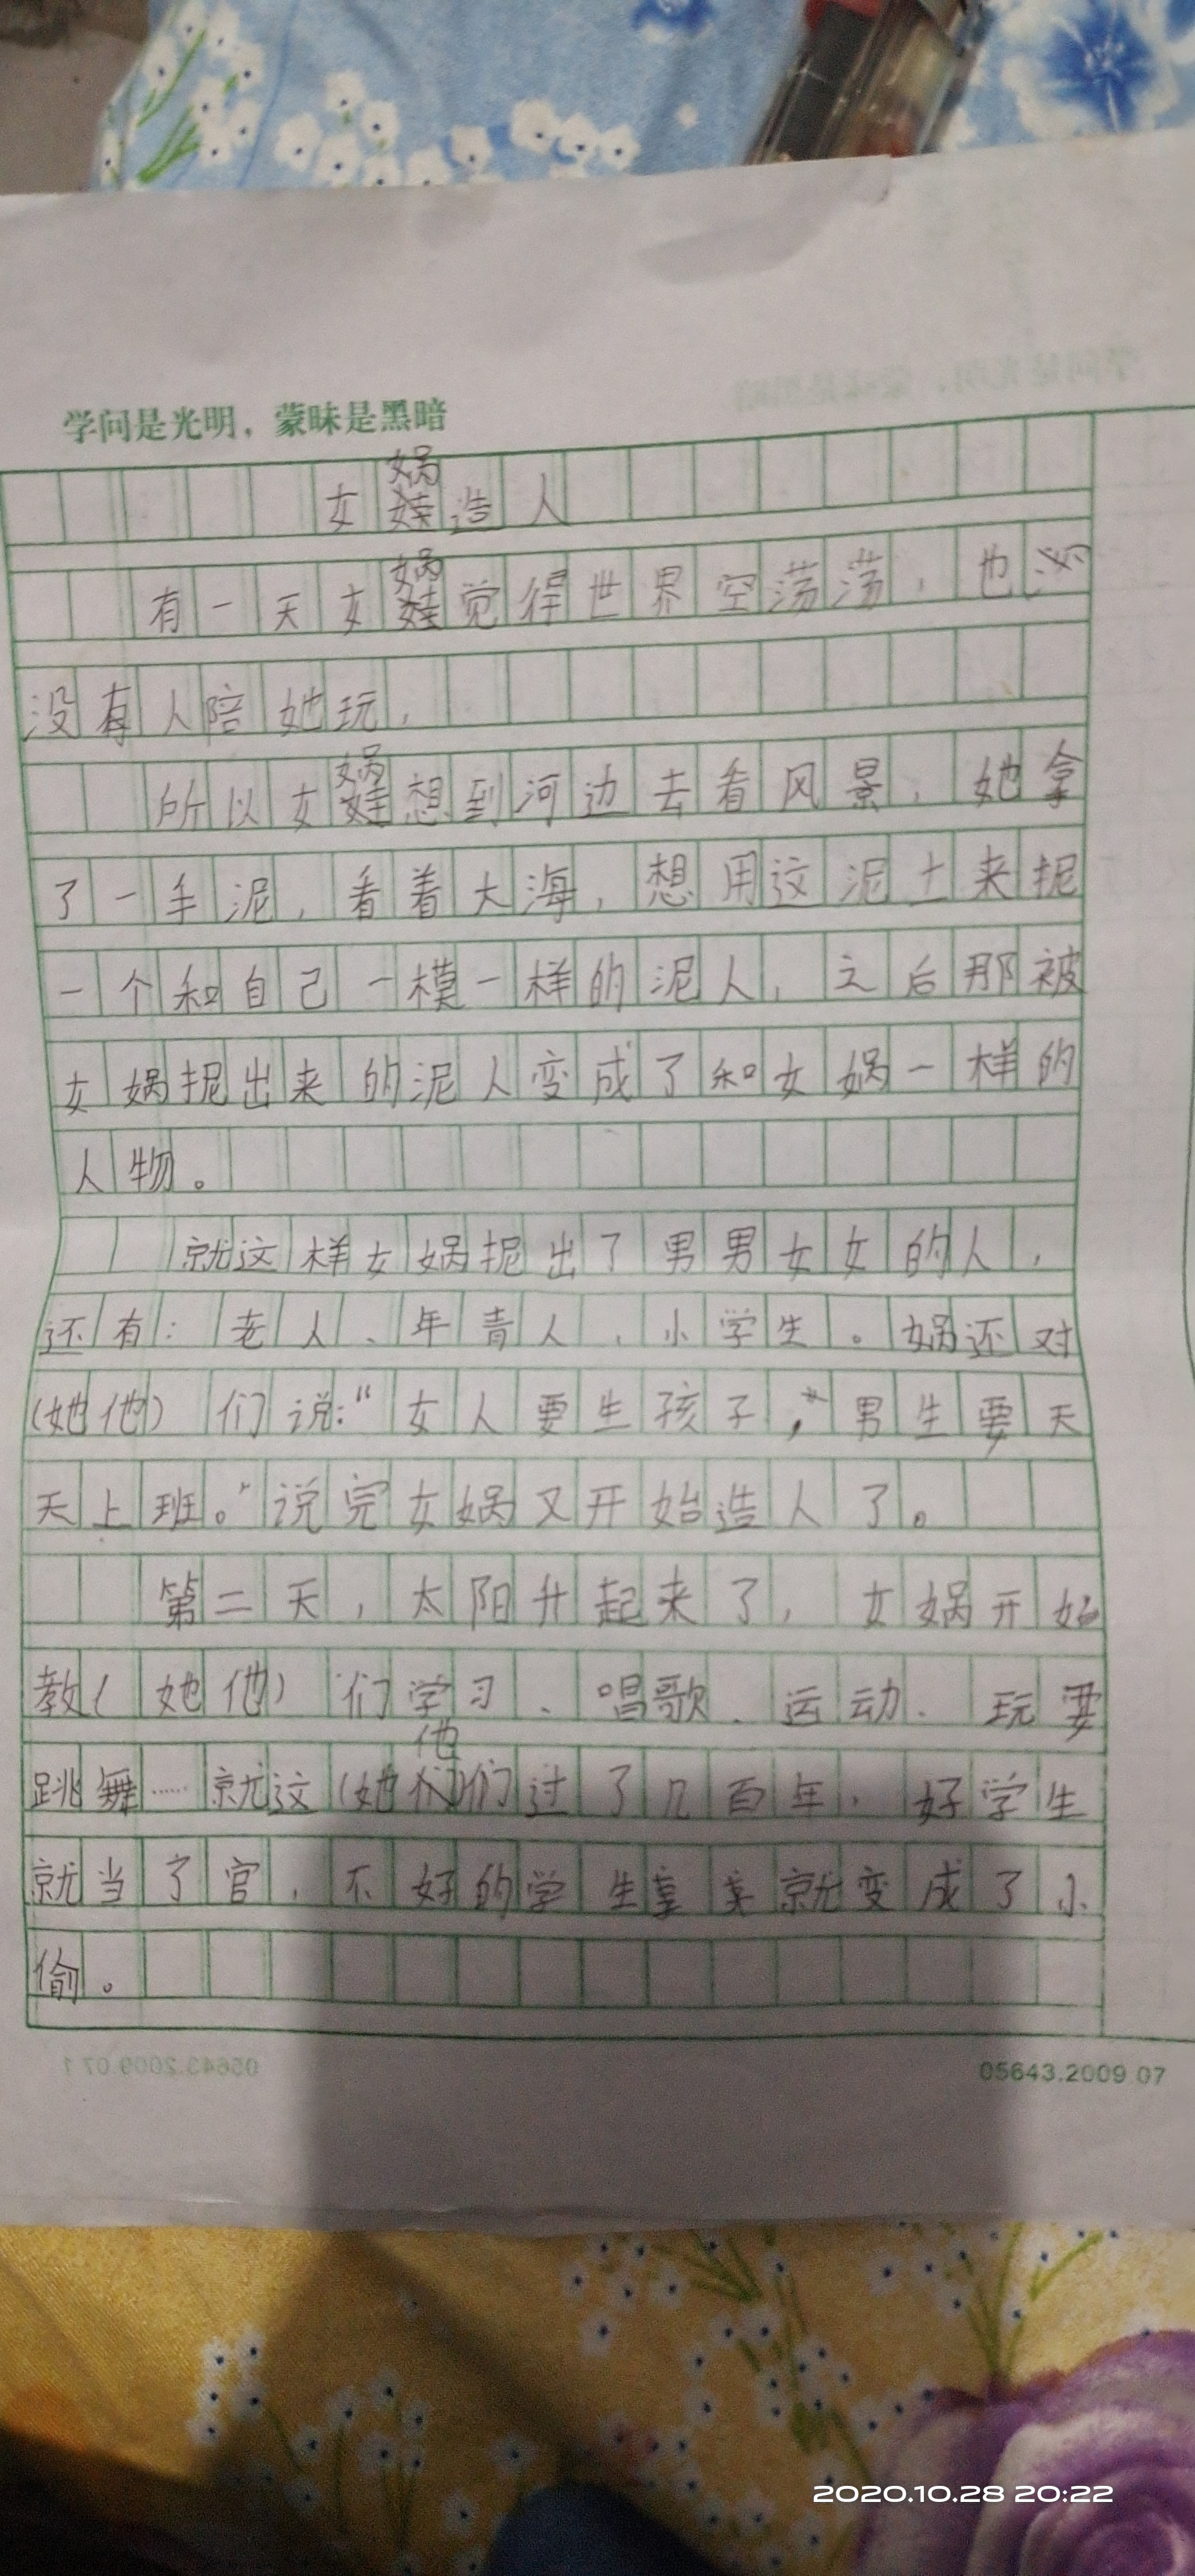 学问是光明，蒙昧是黑暗
女娲造人
有一天女娲觉得世界空荡荡，也
没有人陪她玩，
所以女娲想到河边去看风景，她拿
了一手泥，看着大海，想用这泥土来抳
一个和自己一模一样的泥人，之后那被
女娲抳出来的泥人变成了和女娲一样的
人物。
就这样女娲抳出了男男女女的人，
还有：老人、年青人、小学生。娲还对
（她他）们说：“女人要生孩子，男生要天
天上班。”说完女娲又开始造人了。
第二天，太阳升起来了，女娲开始
教（她他）们学习、唱歌、运动、玩要
跳舞……就这（她他）们过了几百年，好学生
就当了官，不好的学生就变成了小
偷。
05643.2009.07
2020.10.28 20:22